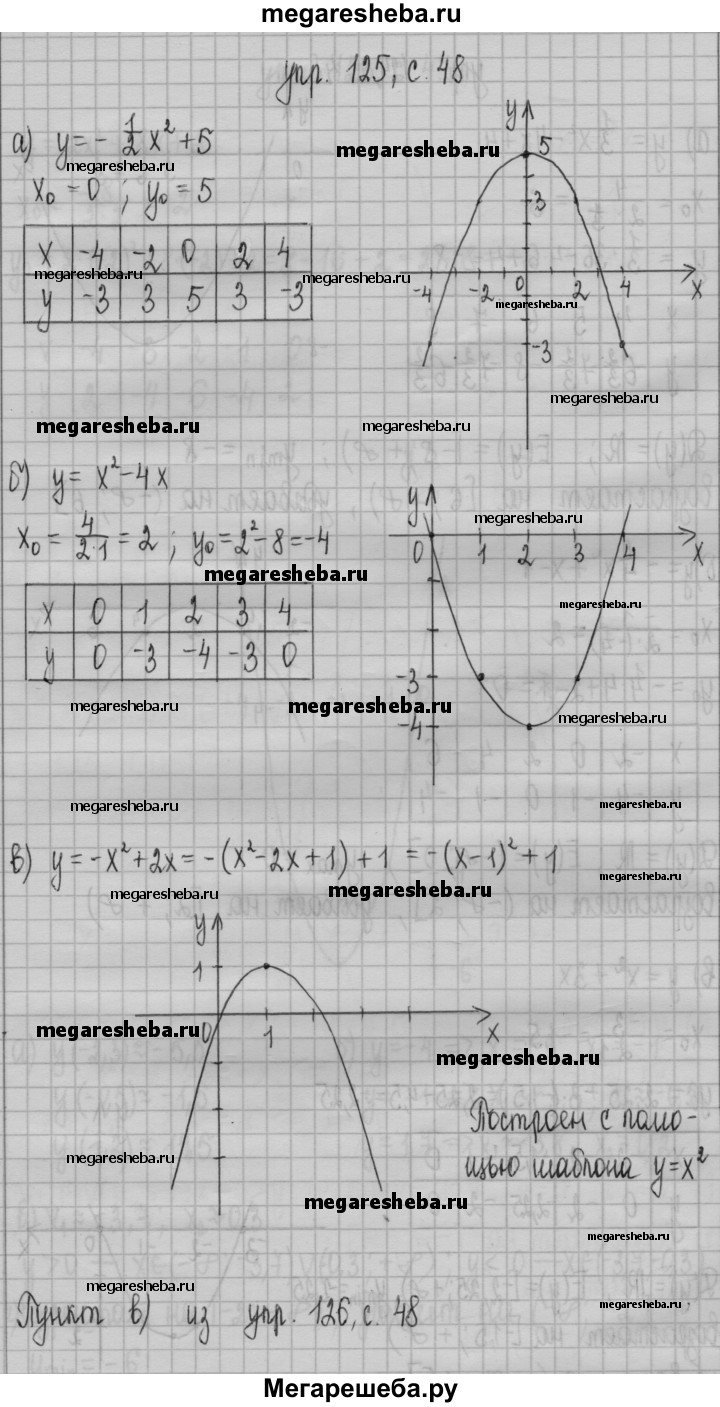 megaresheba.ru
упр. 125, с. 48
а) y = - 1/2 x² + 5
megaresheba.ru
megaresheba.ru
x₀ = 0 ; y₀ = 5
x -4 -2 0 2 4
megaresheba.ru
y -3 3 5 3 -3
y 5
3
megaresheba.ru
-4 -2 0 2 4 x
megaresheba.ru
-3
megaresheba.ru
megaresheba.ru
megaresheba.ru
б) y = x² - 4x
x₀ = 4/2·1 = 2 ; y₀ = 2² - 8 = -4
megaresheba.ru
x 0 1 2 3 4
y 0 -3 -4 -3 0
y
megaresheba.ru
0 1 2 3 4 x
megaresheba.ru
-3
-4
megaresheba.ru
megaresheba.ru
megaresheba.ru
megaresheba.ru
megaresheba.ru
в) y = -x² + 2x = -(x² - 2x + 1) + 1 = -(x - 1)² + 1
megaresheba.ru
megaresheba.ru
megaresheba.ru
y
1
0 1 x
megaresheba.ru
megaresheba.ru
Построен с помо-
щью шаблона y = x²
megaresheba.ru
megaresheba.ru
megaresheba.ru
megaresheba.ru
megaresheba.ru
Пункт в) из упр. 126, с. 48
Мегарешеба.ру